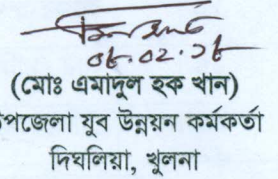 ০৮.০২.১৮
(মোঃ এমাদুল হক খান)
পজেলা যুব উন্নয়ন কর্মকর্তা
দিঘলিয়া, খুলনা